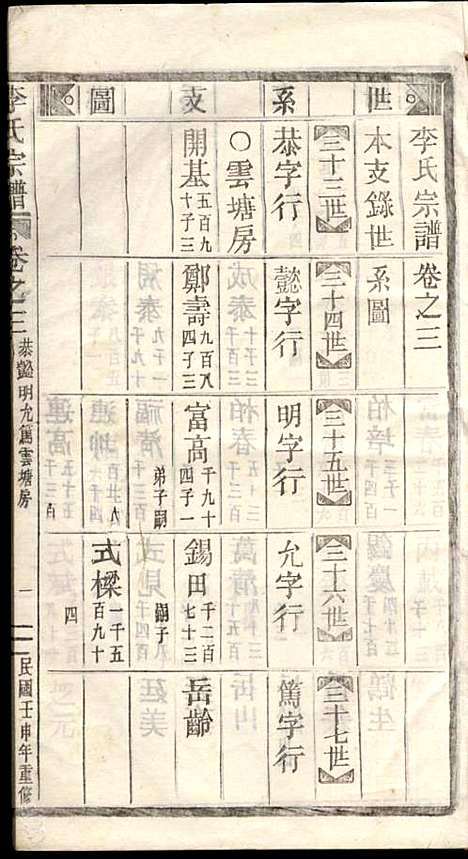 世系支圖
李氏宗譜卷之三
本支錄世系圖
三十三世
三十四世
三十五世
三十六世
三十七世
恭字行
懿字行
明字行
允字行
篤字行
○雲塘房
開基
五百九
十子三
鄭壽
九百八
四子三
富高
千九十
四子一
錫田
千二百
七十三
岳齡
弟子嗣
嗣子
式樑
一千五
百九十
四
李氏宗譜
卷之三
恭懿明允篤雲塘房
一
民國壬申年重修